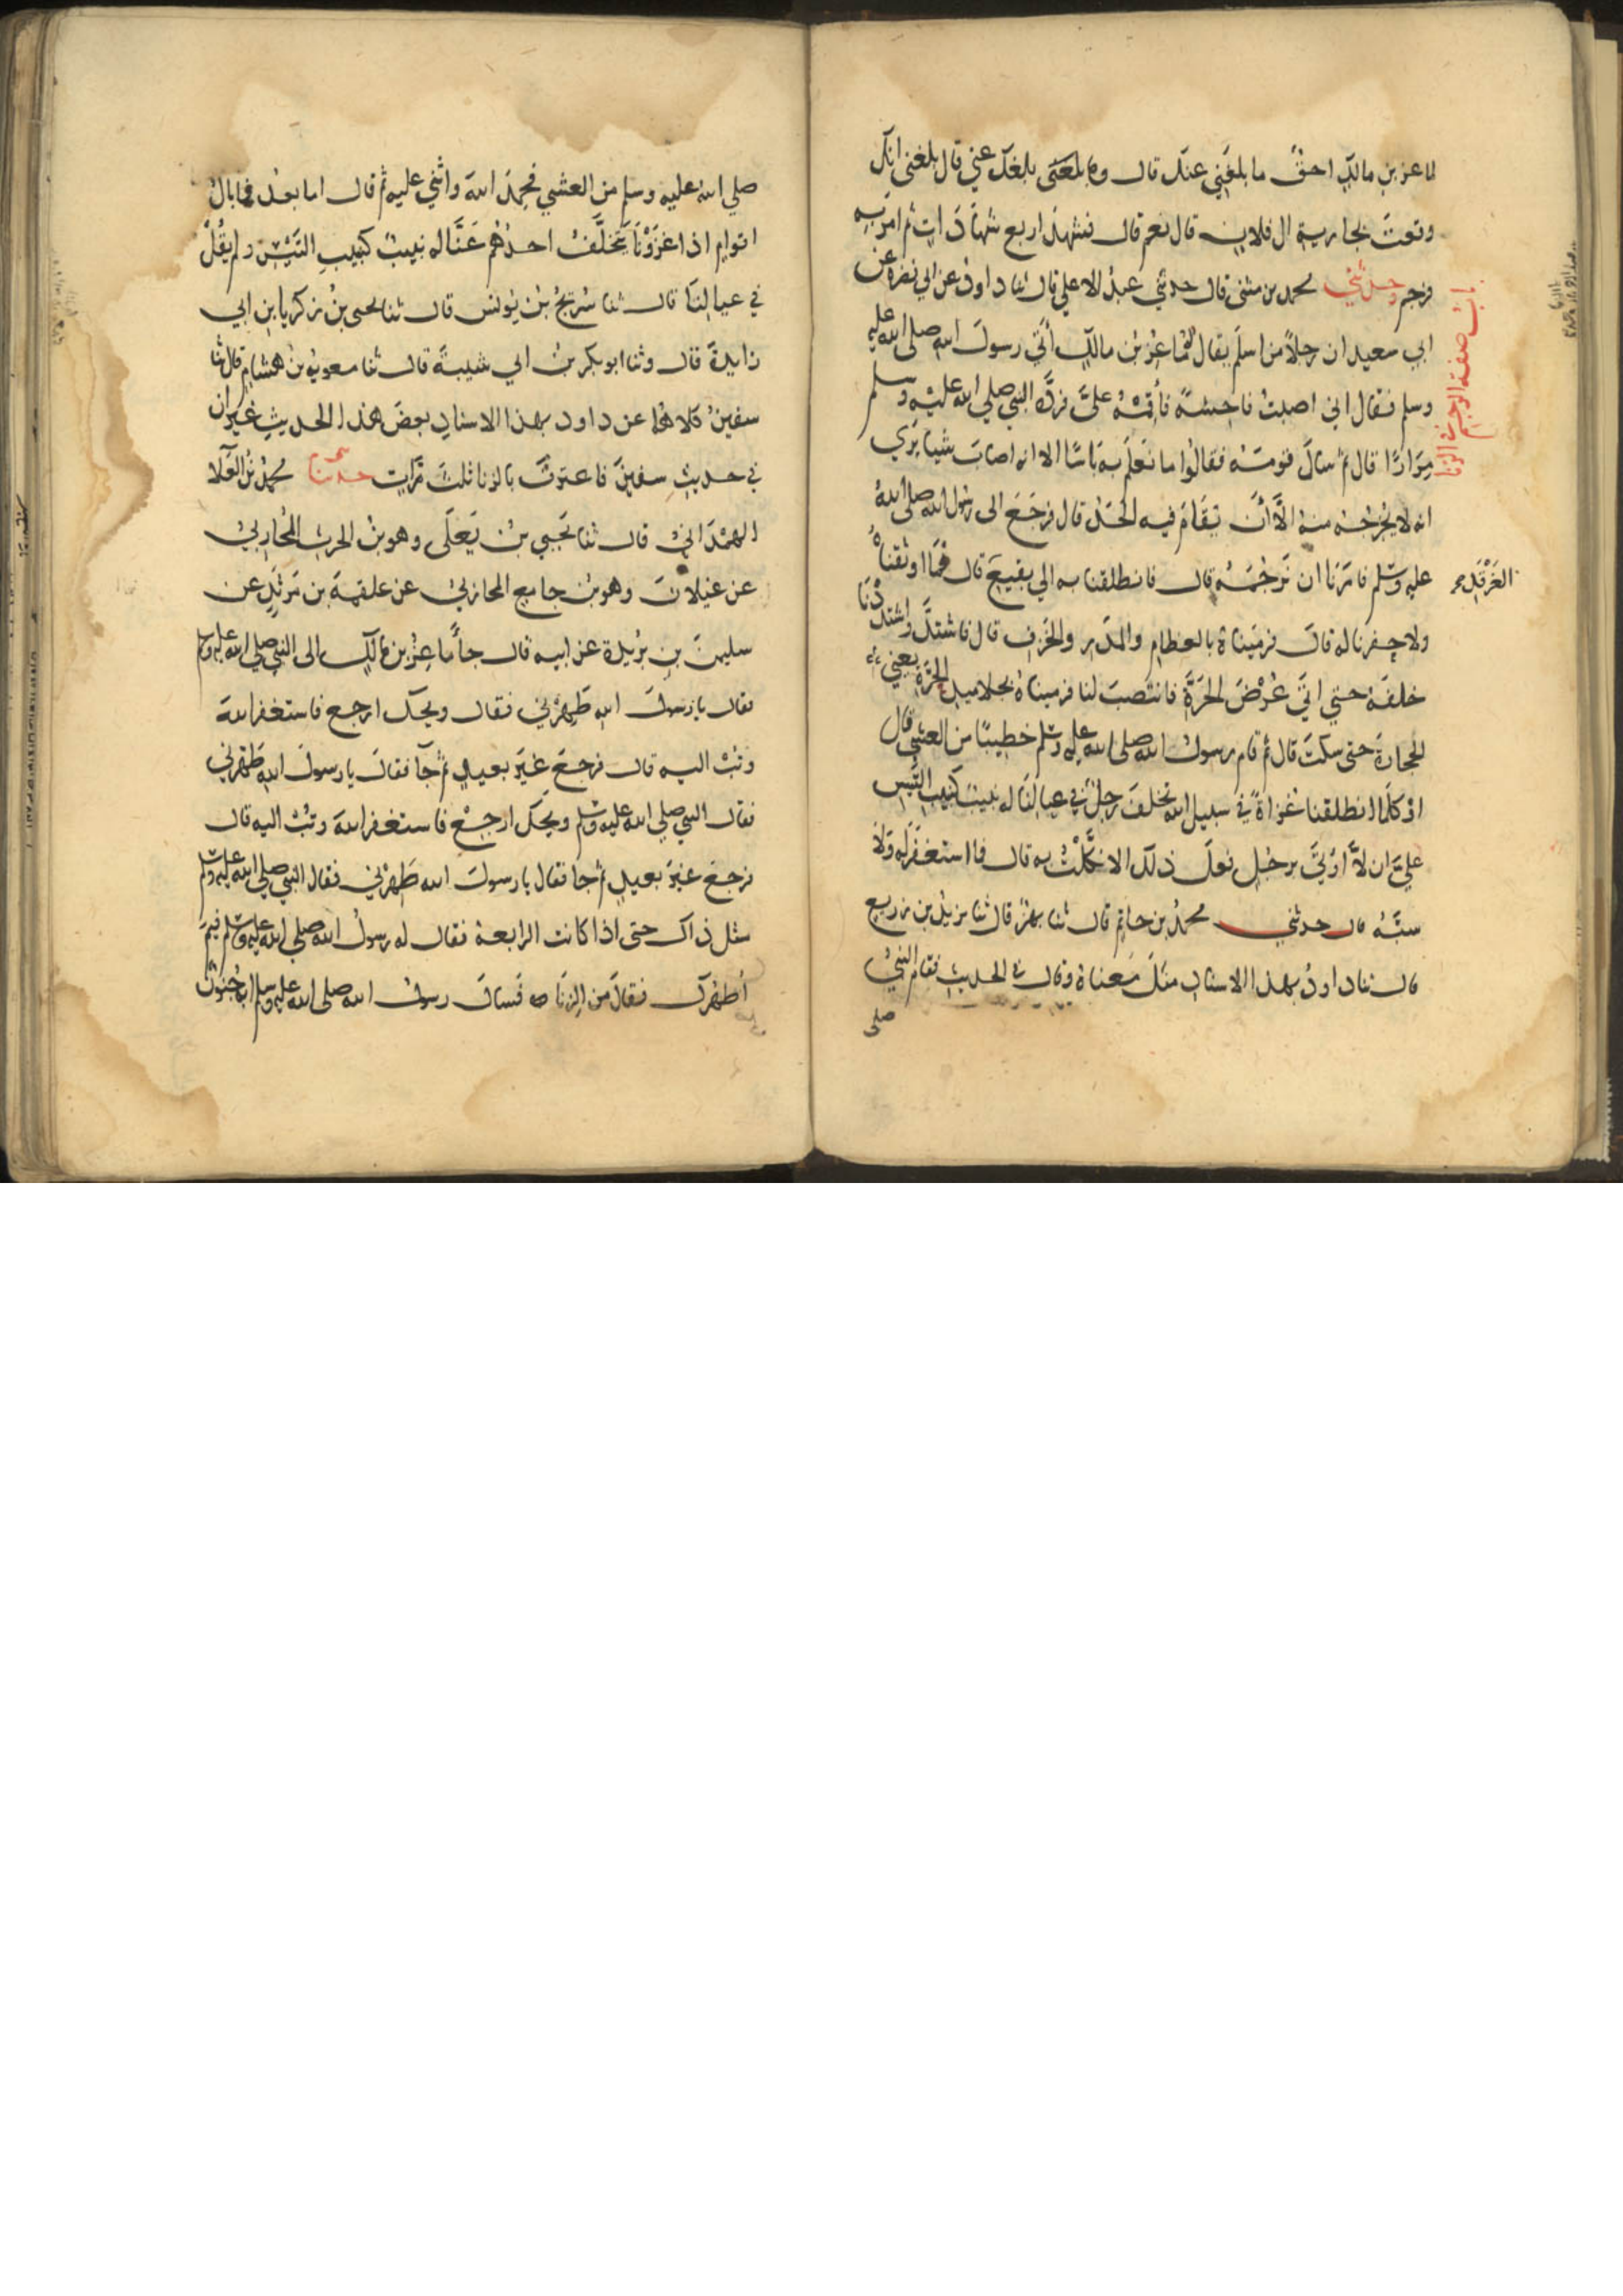 لماعز بن مالك احق ما بلغني عنك قال وما بلغك عني قال بلغني انك
وقعت بجارية ال فلان قال نعم قال فشهد اربع شهادات ثم امر به
فرجم وحدثني محمد بن مثنى قال حدثني عبد الاعلي قال ثنا داود عن ابي نضرة عن
باب صفة الرجم في الزنا
ابي سعيد ان رجلا من اسلم يقال له ماعز بن مالك اتي رسول الله صلى الله عليه
وسلم فقال اني اصبت فاحشة فأقمه علي فرده النبي صلي الله عليه وسلم
مرارا قال ثم سال قومه فقالوا ما نعلم به باسا الا انه اصاب شيا يري
انه لا يخرجه منه الا ان يقام فيه الحد قال فرجع الى رسول الله صلى الله
عليه وسلم فامرنا ان نرجمه قال فانطلقنا به الي بقيع قال فما اوثقناه
الغرقد صح
ولا حفرنا له قال فرميناه بالعظام والمدر والخزف قال فاشتد واشتددنا
خلفه حتي اتي عرض الحرة فانتصب لنا فرميناه بجلاميد الحرة يعني
الحجارة حتى سكت قال ثم قام رسول الله صلى الله عليه وسلم خطيبا من العشي قال
او كلما انطلقنا غزاة في سبيل الله تخلف رجل في عيالنا له نبيب كنبيب التيس
علي ان لا اوتي برجل فعل ذلك الا نكلت به قال فما استغفر له ولا
سبه قال حدثني محمد بن حاتم قال ثنا بهز قال ثنا يزيد بن زريع
قال ثنا داود بهذا الاسناد مثل معناه وقال في الحديث فقام النبي
صلى
صلي الله عليه وسلم من العشي فحمد الله واثني عليه ثم قال اما بعد فما بال
اقوام اذا غزونا يتخلف احدهم عنا له نبيب كنبيب التيس ولم يقل
في عيالنا قال ثنا سريج بن يونس قال ثنا يحيى بن زكريا بن ابي
زايدة قال وثنا ابو بكر بن ابي شيبة قال ثنا معوية بن هشام قال ثنا
سفين كلاهما عن داود بهذا الاسناد بعض هذا الحديث غير ان
في حديث سفين فاعترف بالزنا ثلث مرات حدثنا محمد بن العلا
الهمداني قال ثنا يحيي بن يعلى وهو بن الحرث المحاربي
عن غيلان وهو بن جامع المحاربي عن علقمة بن مرثد عن
سليمن بن بريدة عن ابيه قال جأ ماعز بن مالك الى النبي صلي الله عليه وسلم
فقال يا رسول الله طهرني فقال ويحك ارجع فاستغفر الله
وتب اليه قال فرجع غير بعيد ثم جآ فقال يا رسول الله طهرني
فقال النبي صلي الله عليه وسلم ويحك ارجع فاستغفر الله وتب اليه قال
فرجع غير بعيد ثم جا فقال يا رسول الله طهرني فقال النبي صلي الله عليه وسلم
مثل ذاك حتى اذا كانت الرابعة فقال له رسول الله صلى الله عليه وسلم فيم
أطهرك فقال من الزنا فسال رسول الله صلى الله عليه وسلم ابه جنون